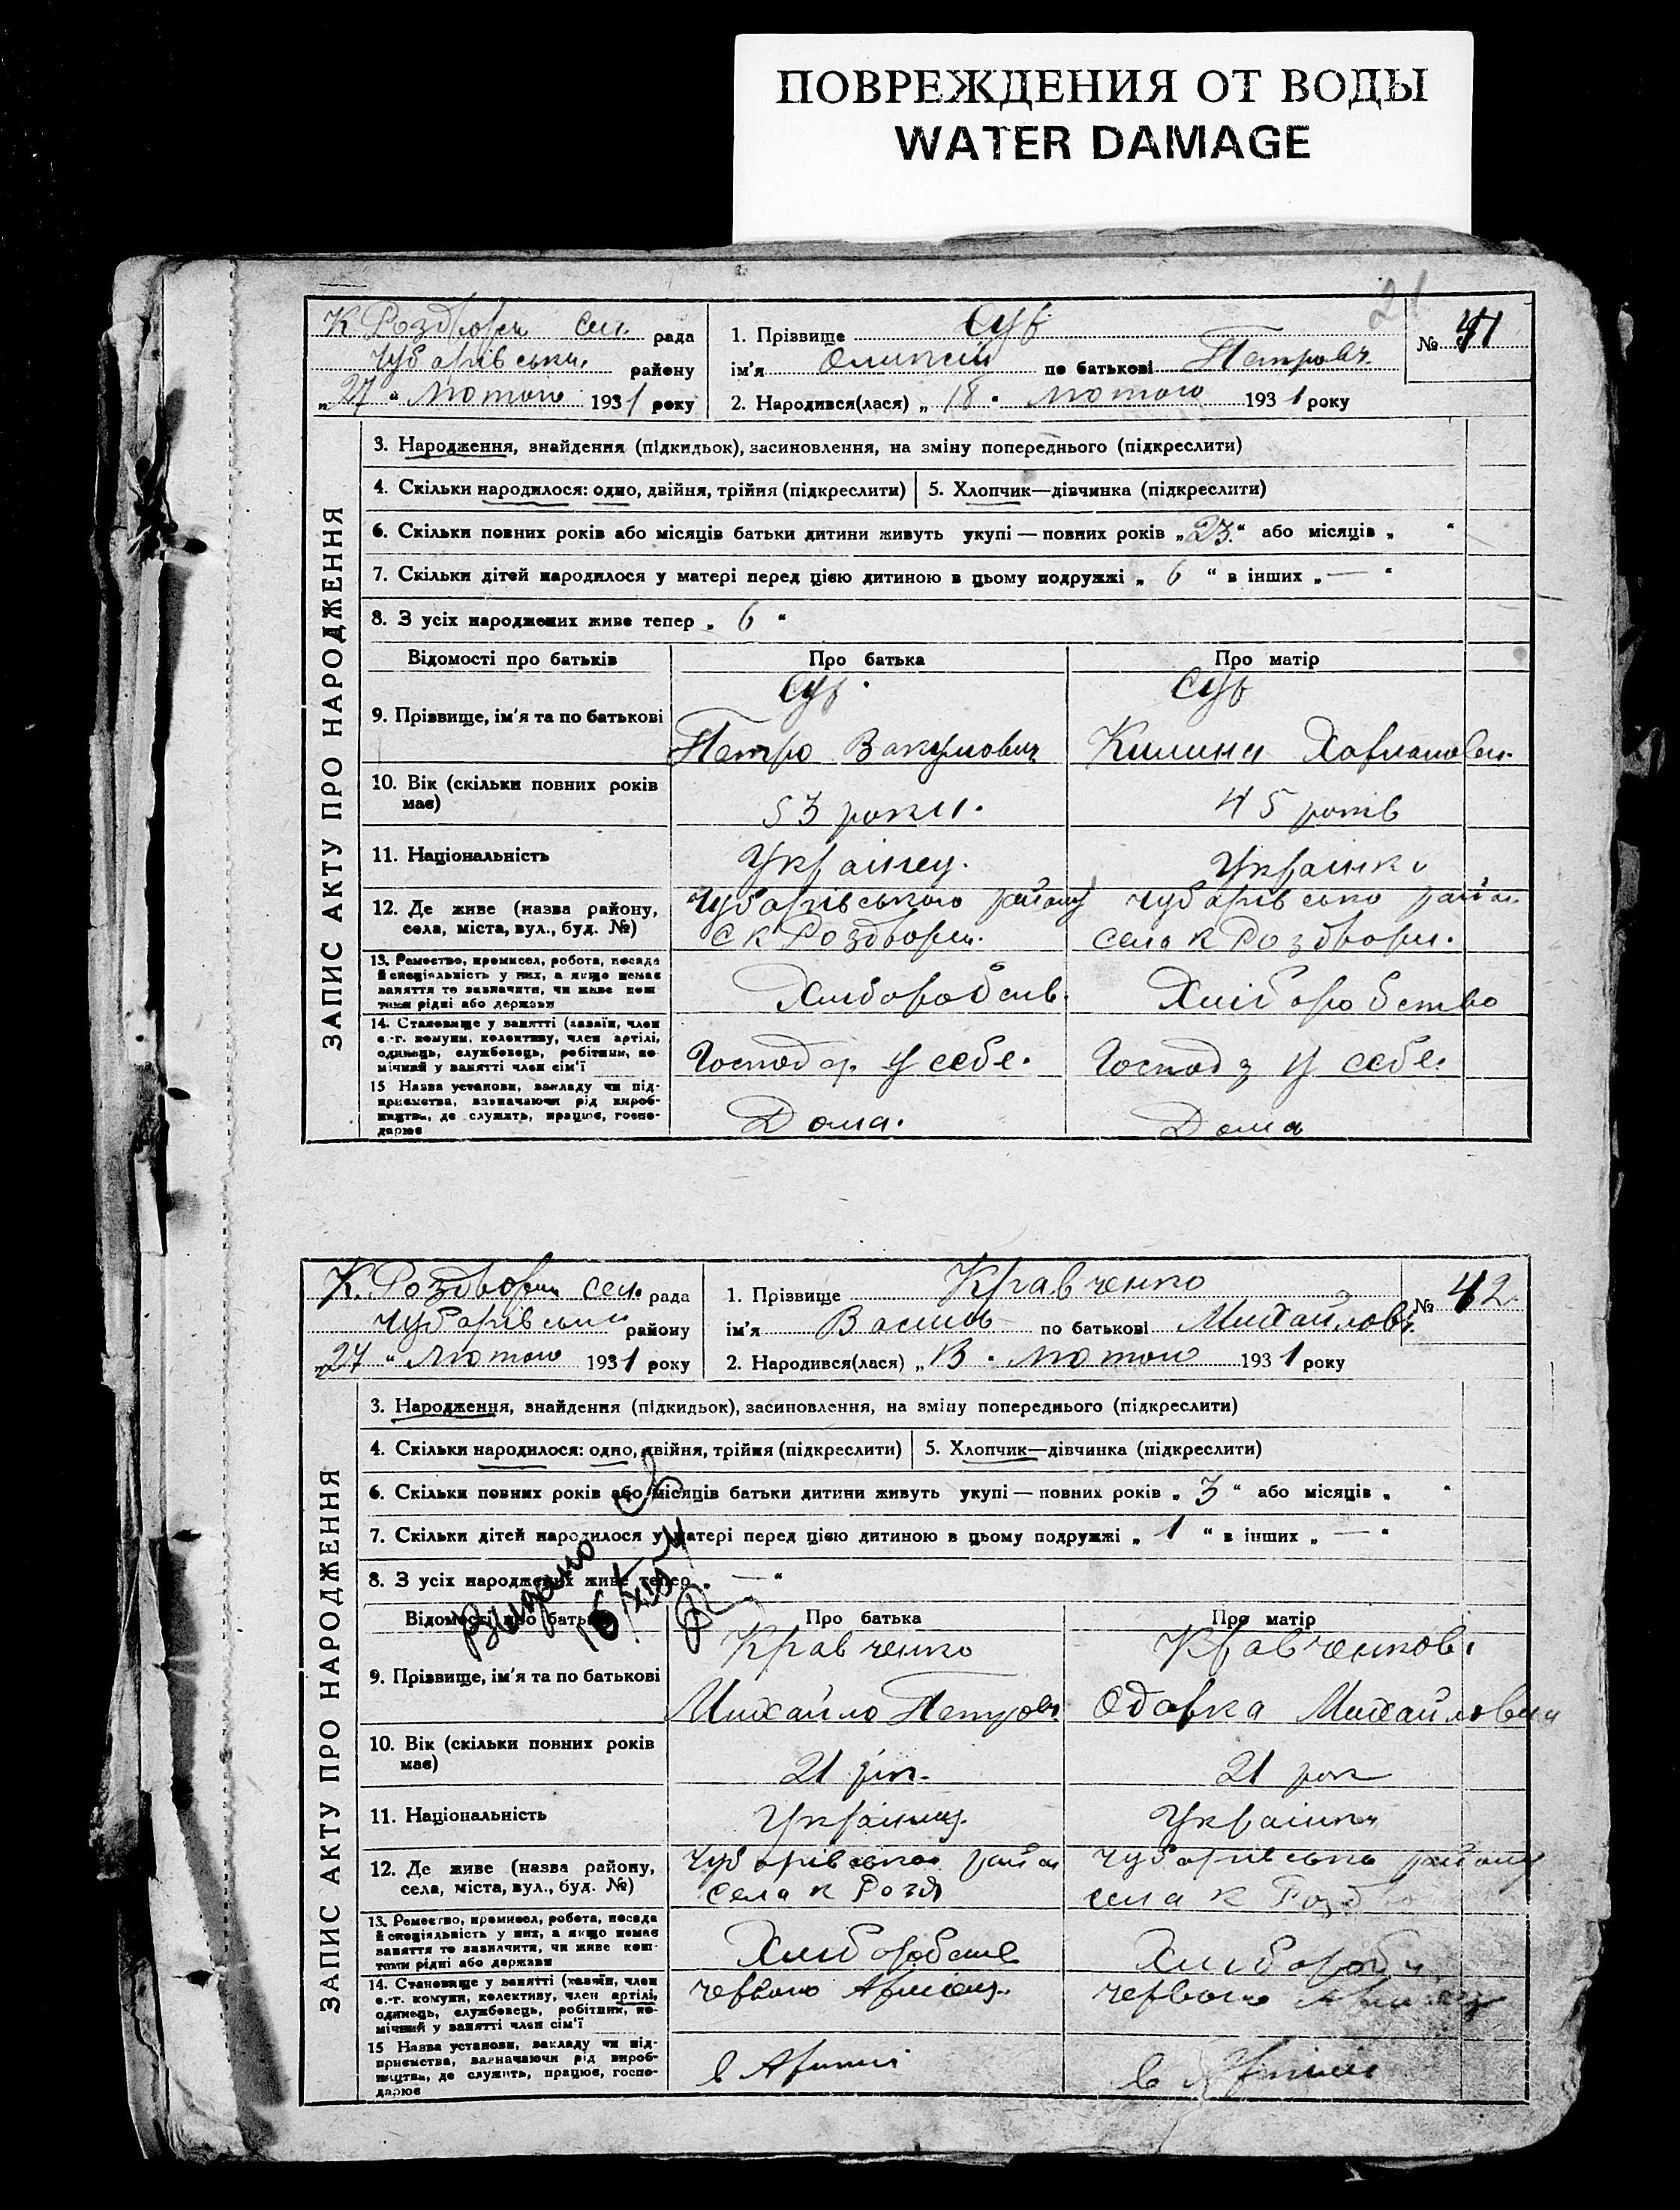 ПОВРЕЖДЕНИЯ ОТ ВОДЫ
WATER DAMAGE
21
К Роздори сел. рада
Чубарівськи. району
„27“ Лютого 1931 року
1. Прізвище Сук
ім'я Олексій по батькові Петрович
2. Народився(лася) „18“ Лютого 1931 року
№ 41
ЗАПИС АКТУ ПРО НАРОДЖЕННЯ
3. Народження, знайдення (підкидьок), засиновлення, на зміну попереднього (підкреслити)
4. Скільки народилося: одно, двійня, трійня (підкреслити) 5. Хлопчик—дівчинка (підкреслити)
6. Скільки повних років або місяців батьки дитини живуть укупі — повних років „23“ або місяців „ “
7. Скільки дітей народилося у матері перед цією дитиною в цьому подружжі „ 6 “ в інших „ — “
8. З усіх народжених живе тепер „ 6 “
Відомості про батьків Про батька Про матір
9. Прізвище, ім'я та по батькові
Петро Вакумович
Килина
10. Вік (скільки повних років має)
53 роки. 45 років
11. Національність
Українец. Українка
12. Де живе (назва району, села, міста, вул., буд. №)
Чубарівського району Чубарівсько район
С К Роздори. села К Роздори.
13. Ремество, промисел, робота, посада й спеціяльність у них, а якщо немає заняття то зазначити, чи живе коштами рідні або держави
Хліборобств. Хліборобство
14. Становище у занятті (хазяїн, член с.-г. комуни, колективу, член артілі, одинець, службовець, робітник, помічний у занятті член сім'ї
Господар. у себе. Господ у себе.
15 Назва установи, закладу чи підприємства, зазначаючи рід виробництва, де служить, працює, господарює
Дома. Дома
К. Роздори сел. рада
Чубарівськи району
„27“ Лютого 1931 року
1. Прізвище Кравченко
ім'я Василь по батькові Михайлович
2. Народився(лася) „13“ Лютого 1931 року
№ 42
ЗАПИС АКТУ ПРО НАРОДЖЕННЯ
3. Народження, знайдення (підкидьок), засиновлення, на зміну попереднього (підкреслити)
4. Скільки народилося: одно, двійня, трійня (підкреслити) 5. Хлопчик—дівчинка (підкреслити)
6. Скільки повних років або місяців батьки дитини живуть укупі — повних років „ 3 “ або місяців „ “
7. Скільки дітей народилося у матері перед цією дитиною в цьому подружжі „ 1 “ в інших „ — “
8. З усіх народжених живе тепер „ — “
Видано
Відомості про батьків Про батька Про матір
Кравченко Кравченкова
9. Прізвище, ім'я та по батькові
Михайло Петров. Одарка Михайловна
10. Вік (скільки повних років має)
21 рік. 21 рок
11. Національність
Українец. Українка
12. Де живе (назва району, села, міста, вул., буд. №)
Чубарівсько район Чубарівсько району
села К Розд села К Роздо
13. Ремество, промисел, робота, посада й спеціяльність у них, а якщо немає заняття то зазначити, чи живе коштами рідні або держави
Хліборобств Хлібороб
14. Становище у занятті (хазяїн, член с.-г. комуни, колективу, член артілі, одинець, службовець, робітник, помічний у занятті член сім'ї
Червоно Армієц. Червоно Армієц
15 Назва установи, закладу чи підприємства, зазначаючи рід виробництва, де служить, працює, господарює
в Армії в Армії